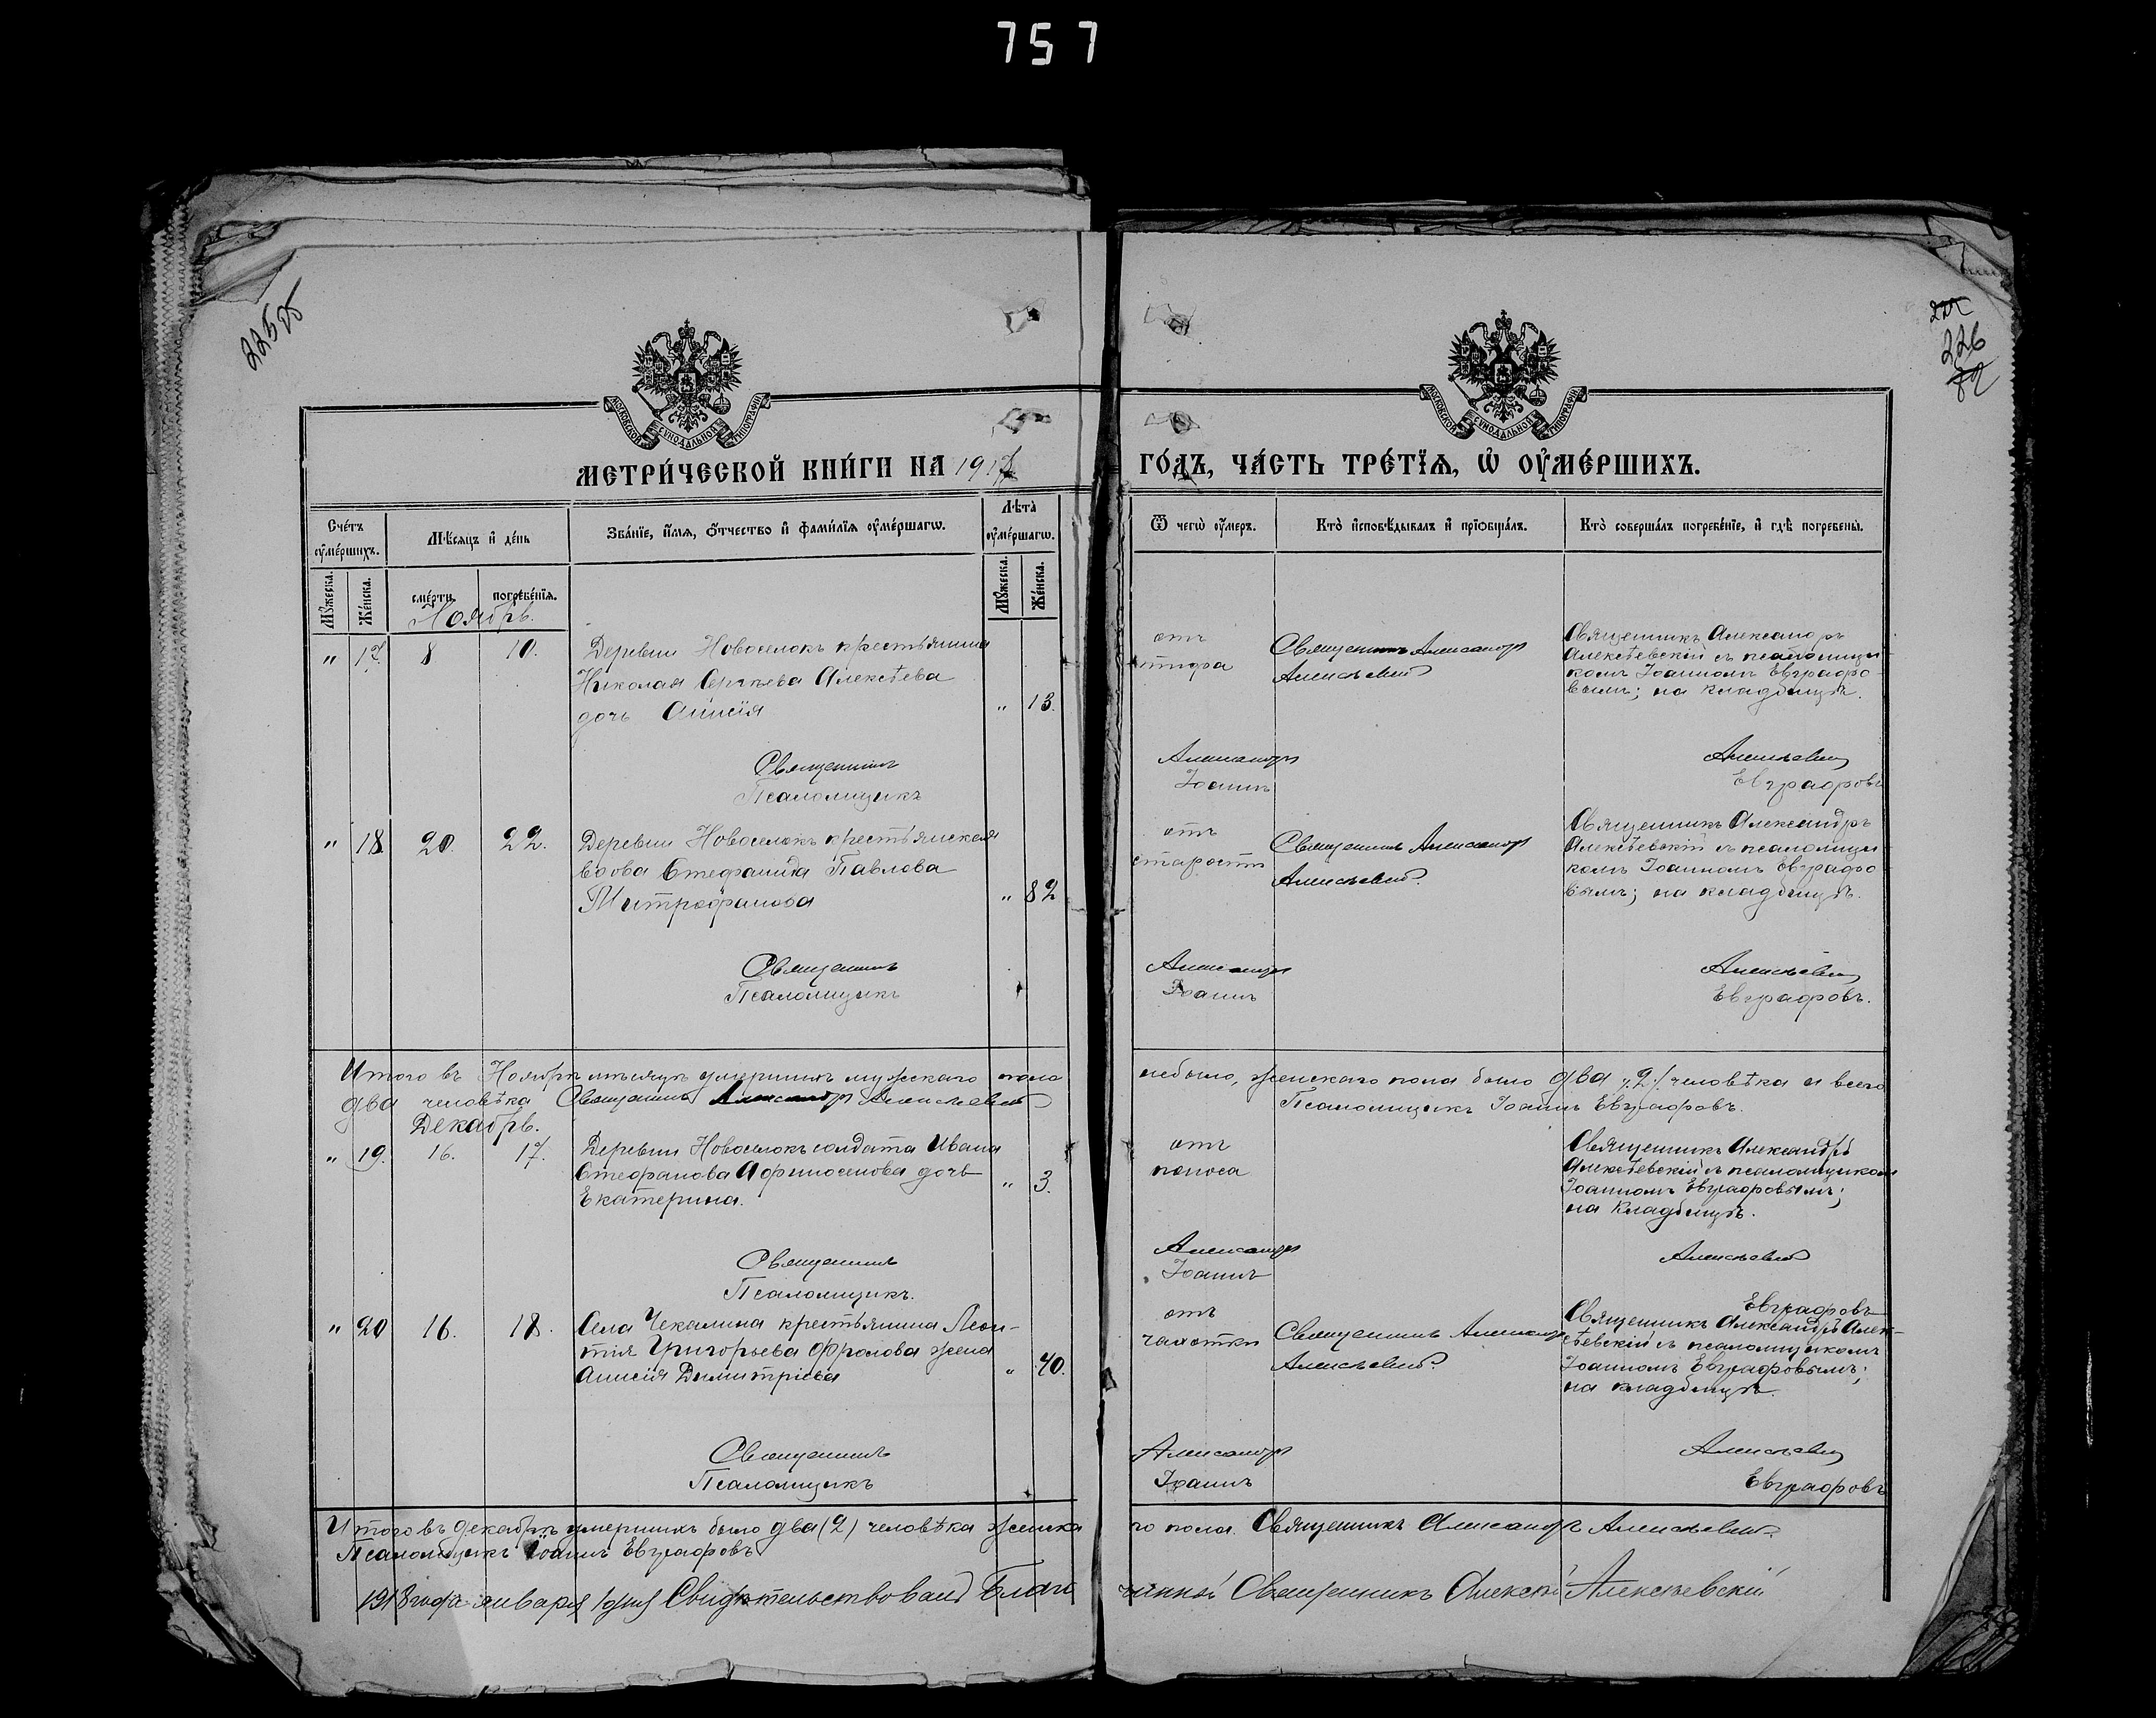 757
225об
226
82
МОСКОВСКОЙ СѴНОДАЛЬНОЙ ТИПОГРАФІИ
МОСКОВСКОЙ СѴНОДАЛЬНОЙ ТИПОГРАФІИ
МЕТРИ́ЧЕСКОЙ КНИ́ГИ НА 1917 ГО́ДЪ, ЧА́СТЬ ТРЕ́ТЇѦ, Ѡ҆ ОУ҆МЕ́РШИХЪ.
Сче́тъ оу҆ме́ршихъ.
Мꙋ́жеска.
Же́нска.
Мѣ́сяцъ и҆ де́нь
сме́рти.
погребе́нїѧ.
Зва́нїе, и҆́мѧ, ѻ҆́тчество и҆ фами́лїѧ оу҆ме́ршагѡ.
Лѣ́та оу҆ме́ршагѡ.
Мꙋ́жеска.
Же́нска.
Ѿ чегѡ̀ оу҆́меръ.
Кто̀ и҆сповѣ́дывалъ и҆ прїѡбща́лъ.
Кто̀ соверша́лъ погребе́нїе, и҆ гдѣ̀ погребены̀.
Ноябрь.
" 17. 8 10.
Деревни Новоселокъ крестьянина
Николая Сергѣева Алексѣева
дочь Анисія
" 13.
отъ
тифа
Священникъ Александръ
Алексѣевскій
Священникъ Александръ
Алексѣевскій съ псаломщи-
комъ Іоанномъ Евграфо-
вымъ; на кладбищѣ.
Священникъ Александръ Алексѣевскій
Псаломщикъ Іоаннъ Евграфовъ
" 18. 20. 22.
Деревни Новоселокъ крестьянская
вдова Стефанида Павлова
Митрофанова
" 82
отъ
старости
Священникъ Александръ
Алексѣевскій.
Священникъ Александръ
Алексѣевскій съ псаломщи-
комъ Іоанномъ Евграфо-
вымъ; на кладбищѣ.
Священникъ Александръ Алексѣевскій
Псаломщикъ Іоаннъ Евграфовъ.
Итого въ Ноябрѣ мѣсяцѣ умершихъ мужскаго пола небыло, женскаго пола было два /2/ человѣка а всего
два человѣка Священникъ Александръ Алексѣевскій Псаломщикъ Іоаннъ Евграфовъ.
Декабрь.
" 19. 16. 17.
Деревни Новоселокъ солдата Ивана
Стефанова дочь
Екатерина.
" 3.
отъ
поноса
Священникъ Александръ
Алексѣевскій съ псаломщикомъ
Іоанномъ Евграфовымъ;
на кладбищѣ.
Священникъ Александръ Алексѣевскій
Псаломщикъ. Іоаннъ Евграфовъ
" 20 16. 18.
Села Чекалина крестьянина Леон-
тія Григорьева Фролова жена
Анисія Димитріева
" 40.
отъ
чахотки
Священникъ Александръ
Алексѣевскій.
Священникъ Александръ Алек-
сѣевскій съ псаломщикомъ
Іоанномъ Евграфовымъ;
на кладбищѣ.
Священникъ Александръ Алексѣевскій
Псаломщикъ Іоаннъ Евграфовъ
Итого въ декабрѣ умершихъ было два (2) человѣка женскаго пола. Священникъ Александръ Алексѣевскій.
Псаломщикъ Іоаннъ Евграфовъ
1918 года января дня Свидѣтельствовалъ Благочинный Священникъ Алексѣй Алексѣевскій